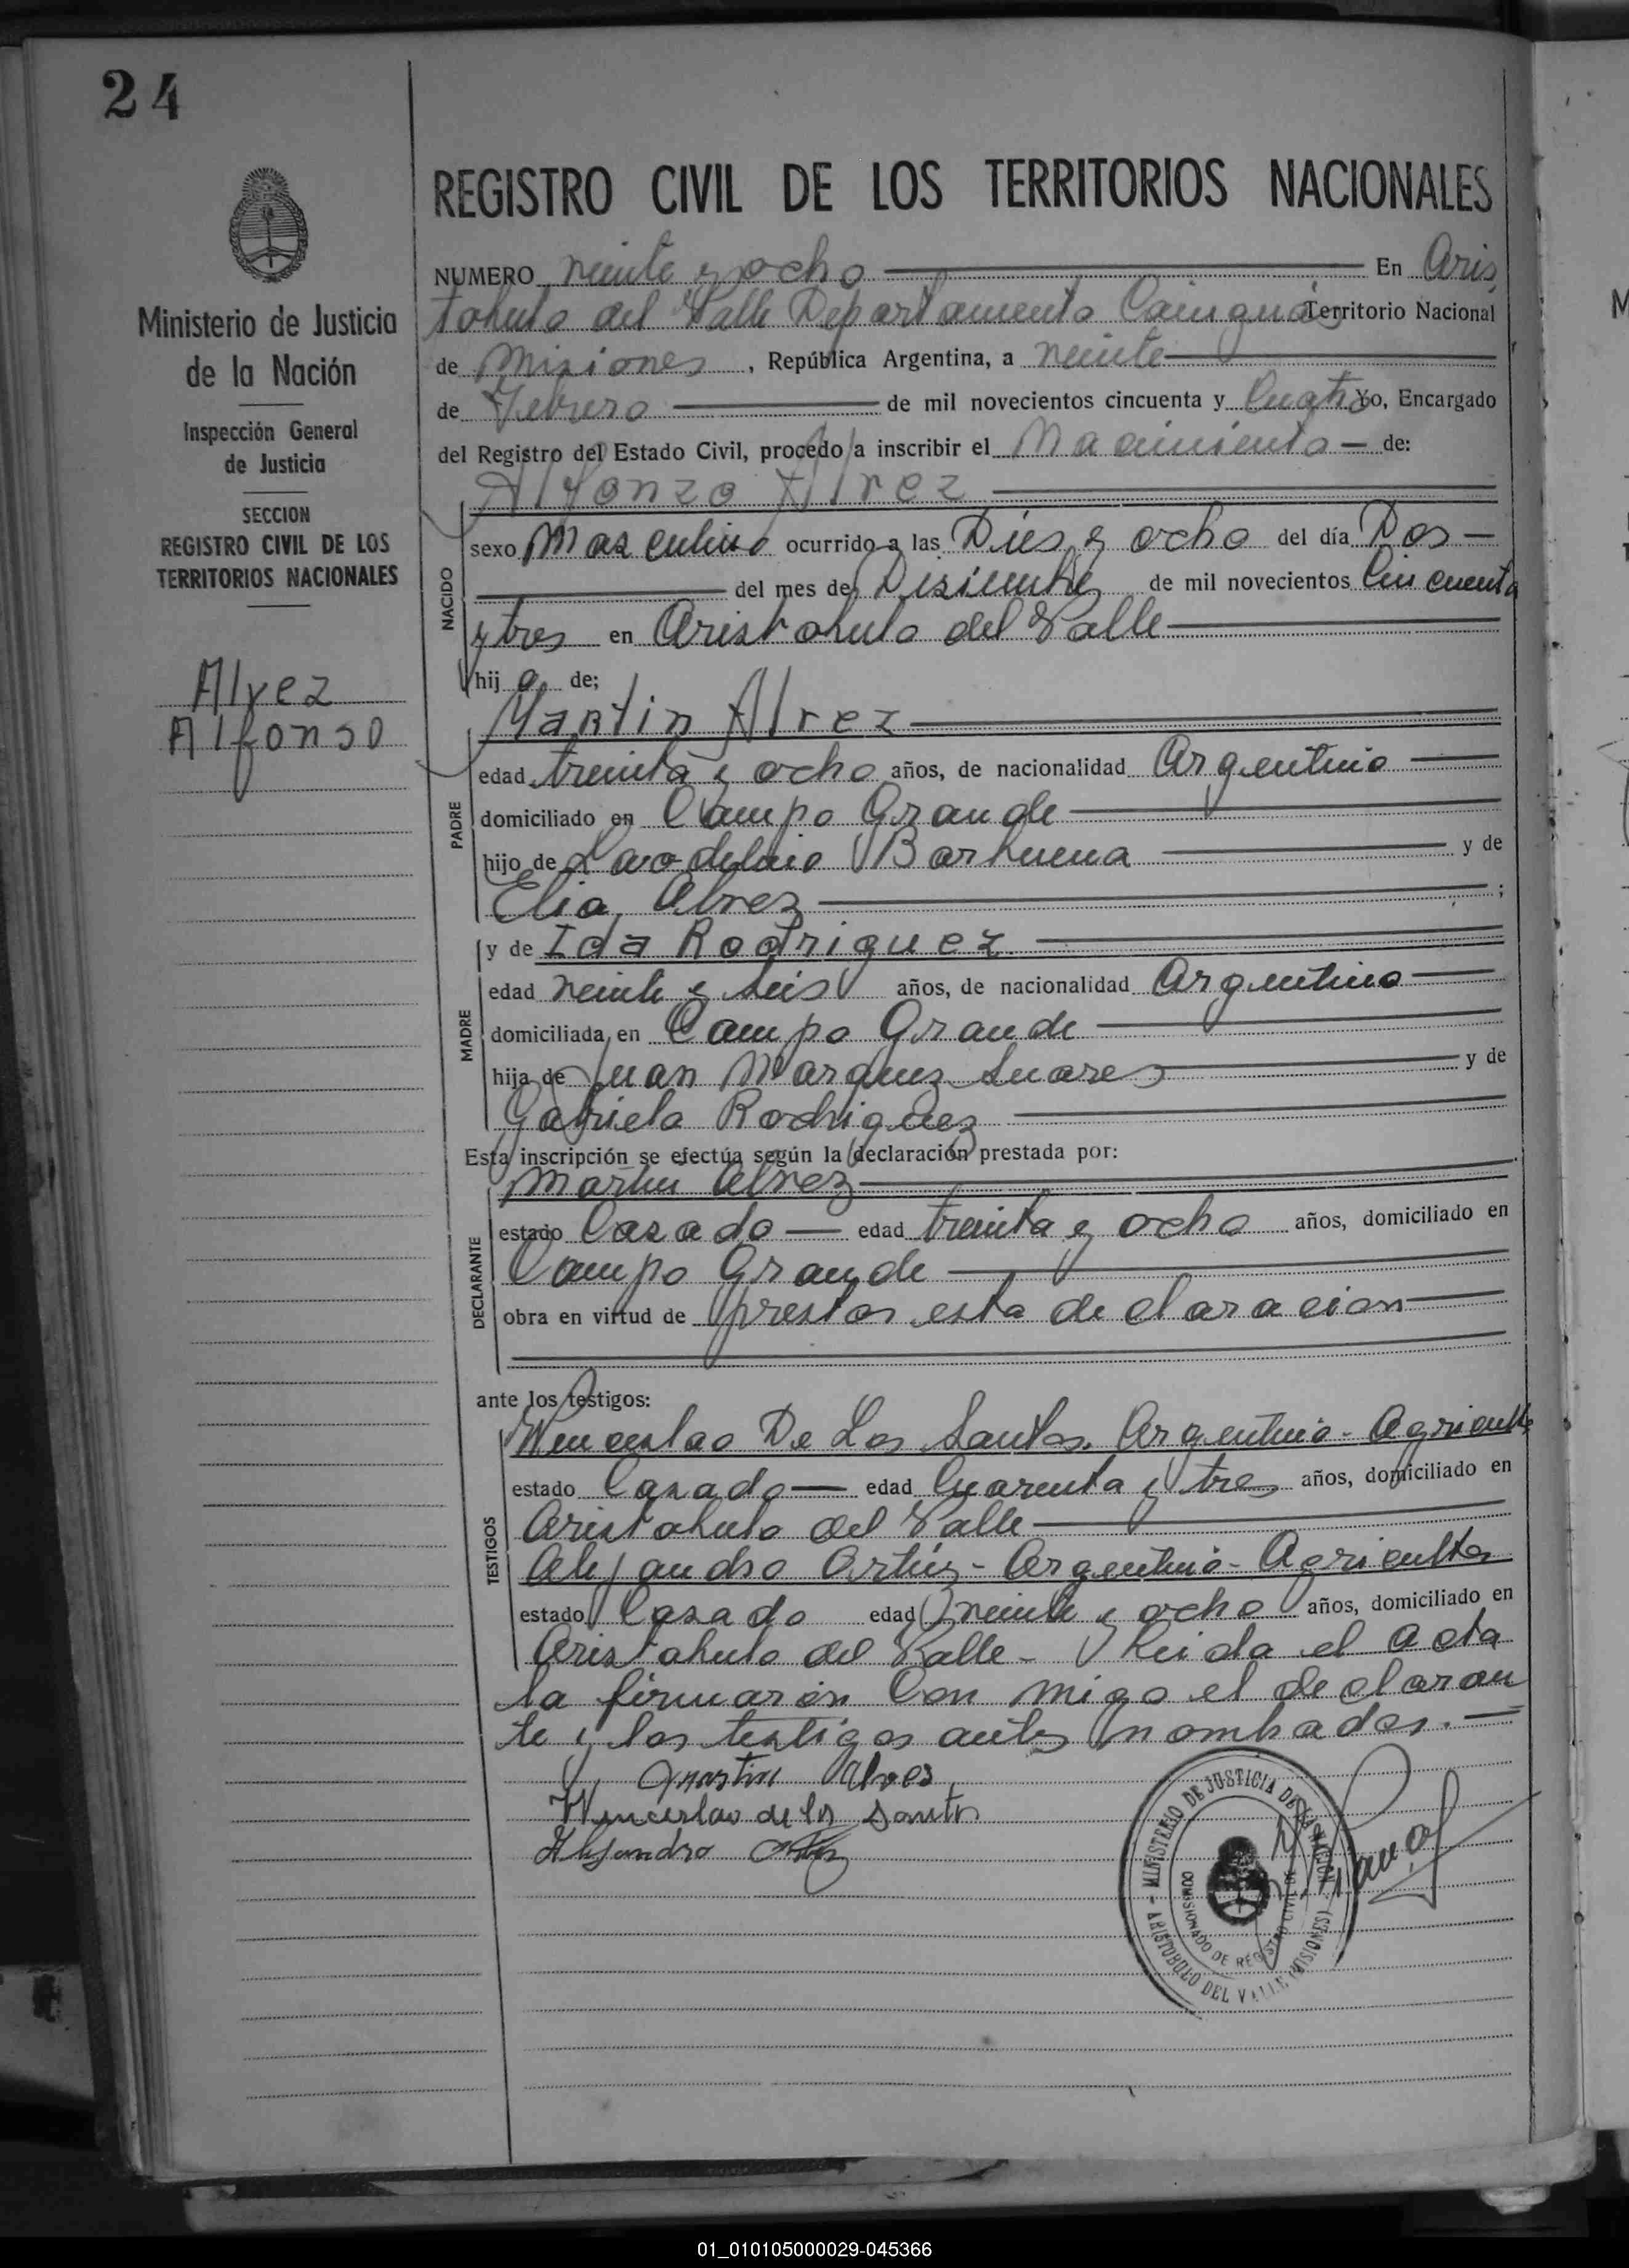 24
REGISTRO CIVIL DE LOS TERRITORIOS NACIONALES
Ministerio de Justicia
de la Nación
Inspección General
de Justicia
SECCION
REGISTRO CIVIL DE LOS
TERRITORIOS NACIONALES
Alvez
Alfonso
NUMERO veinte y ocho En Aris
tobulo del Valle Departamento Cainguás Territorio Nacional
de Misiones, República Argentina, a veinte
de Febrero de mil novecientos cincuenta y Cuatro Yo, Encargado
del Registro del Estado Civil, procedo a inscribir el Nacimiento de:
Alfonzo Alvez
NACIDO
sexo Masculino ocurrido a las Dies y ocho del día Dos
del mes de Disiembre de mil novecientos Cincuenta
y tres en Aristobulo del Valle
hij o de;
Martin Alvez
PADRE
edad treinta y ocho años, de nacionalidad Argentino
domiciliado en Campo Grande
hijo de Barbuena y de
Elia Alvez ;
MADRE
y de Ida Rodriguez
edad veinte y seis años, de nacionalidad Argentino
domiciliada en Campo Grande
hija de Juan Marquez Suares y de
Gabriela Rodriguez
Esta inscripción se efectúa según la declaración prestada por:
Martin Alvez
DECLARANTE
estado Casado edad treinta y ocho años, domiciliado en
Campo Grande
obra en virtud de prestar esta declaracion
ante los testigos:
TESTIGOS
Wenceslao De Los Santos. Argentino - Agricultor
estado Casado edad Cuarenta y tres años, domiciliado en
Aristobulo del Valle
Alejandro Ortiz - Argentino - Agricultor
estado Casado edad veinte y ocho años, domiciliado en
Aristobulo del Valle - Leida el Acta
la firmaron Con migo el declaran
te y los testigos antes nombrados. -
Martin Alves
Wenceslao de los Santos
Alejandro Ortiz
MINISTERIO DE JUSTICIA DE LA NACION
COMISIONADO DE REGISTRO CIVIL
ARISTOBULO DEL VALLE (MISIONES)
01_010105000029-045366